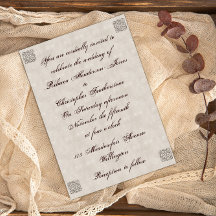 You are cordially invited to
celebrate the wedding of
Rebecca Henderson-Jones
to
Christopher Smitherman
On Saturday afternoon
November the fifteenth
at four o'clock
123 Manchester Avenue
Wellington
Reception to follow